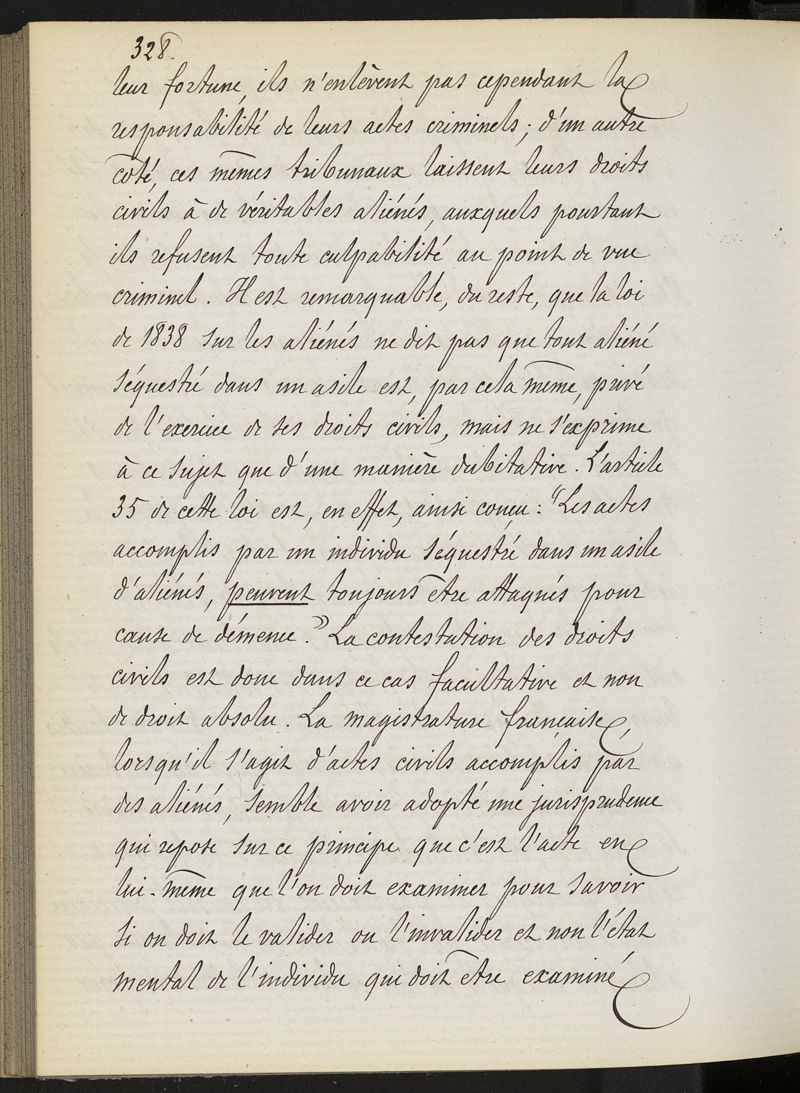 328.
leur fortune, ils n'enlèvent pas cependant la
responsabilité de leurs actes criminels; d'un autre
côté, ces mêmes tribunaux laissent leurs droits
civils à de véritables aliénés, auxquels pourtant
ils refusent toute culpabilité au point de vue
criminel. Il est remarquable, du reste, que la loi
de 1838 sur les aliénés ne dit pas que tout aliéné
séquestré dans un asile est, par cela même, privé
de l'exercice de ses droits civils, mais ne s'exprime
à ce sujet que d'une manière dubitative. L'article
35 de cette loi est, en effet, ainsi conçu: "Les actes
accomplis par un individu séquestré dans un asile
d'aliénés, peuvent toujours être attaqués pour
cause de démence." La contestation des droits
civils est donc dans ce cas facultative et non
de droit absolu. La magistrature française,
lorsqu'il s'agit d'actes civils accomplis par
des aliénés, semble avoir adopté une jurisprudence
qui repose sur ce principe que c'est l'acte en
lui-même que l'on doit examiner pour savoir
si on doit le valider ou l'invalider et non l'état
mental de l'individu qui doit être examiné